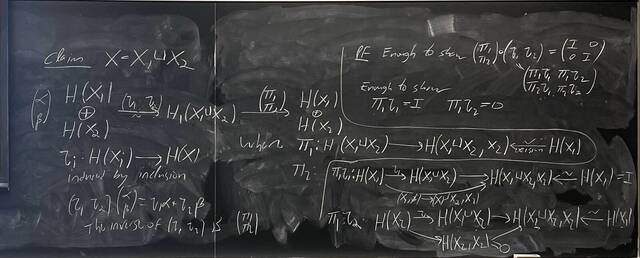 Claim X = X₁ ⊔ X₂
(α β) H(X₁) ⊕ H(X₂) —(τ₁ τ₂)~→ H(X₁⊔X₂) —(π₁ π₂)→ H(X₁) ⊕ H(X₂)
τᵢ : H(Xᵢ) → H(X)
induced by inclusion
(τ₁ τ₂)(α β) = τ₁α + τ₂β
The inverse of (τ₁ τ₂) is (π₁ π₂)
where π₁ : H(X₁⊔X₂) → H(X₁⊔X₂, X₂) ←~ excision H(X₁)
π₂ :
PF Enough to show (π₁ π₂)∘(τ₁, τ₂) = (I 0 0 I)
(π₁τ₁ π₁τ₂ π₂τ₁ π₂τ₂)
Enough to show
π₁τ₁ = I π₁τ₂ = 0
π₁τ₁ : H(X₁) —τ₁→ H(X₁⊔X₂) → H(X₁⊔X₂,X₂) ←~ H(X₁) = I
π₁τ₂ : H(X₂) —τ₂→ H(X₁⊔X₂) → H(X₁⊔X₂,X₂) ←~ H(X₁)
H(X₂,X₂) = 0